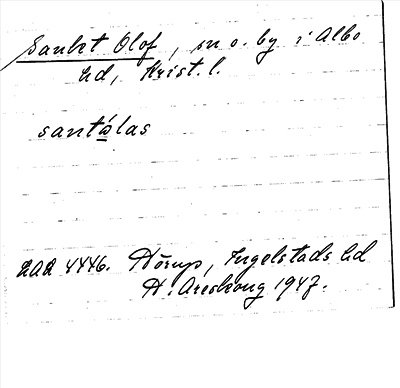 Sankt Olof, sn o. by i Albo
hd, Krist. l.
santálas
LAA 4446. Hörup, Ingelstads hd
H. Areskoug 1947.